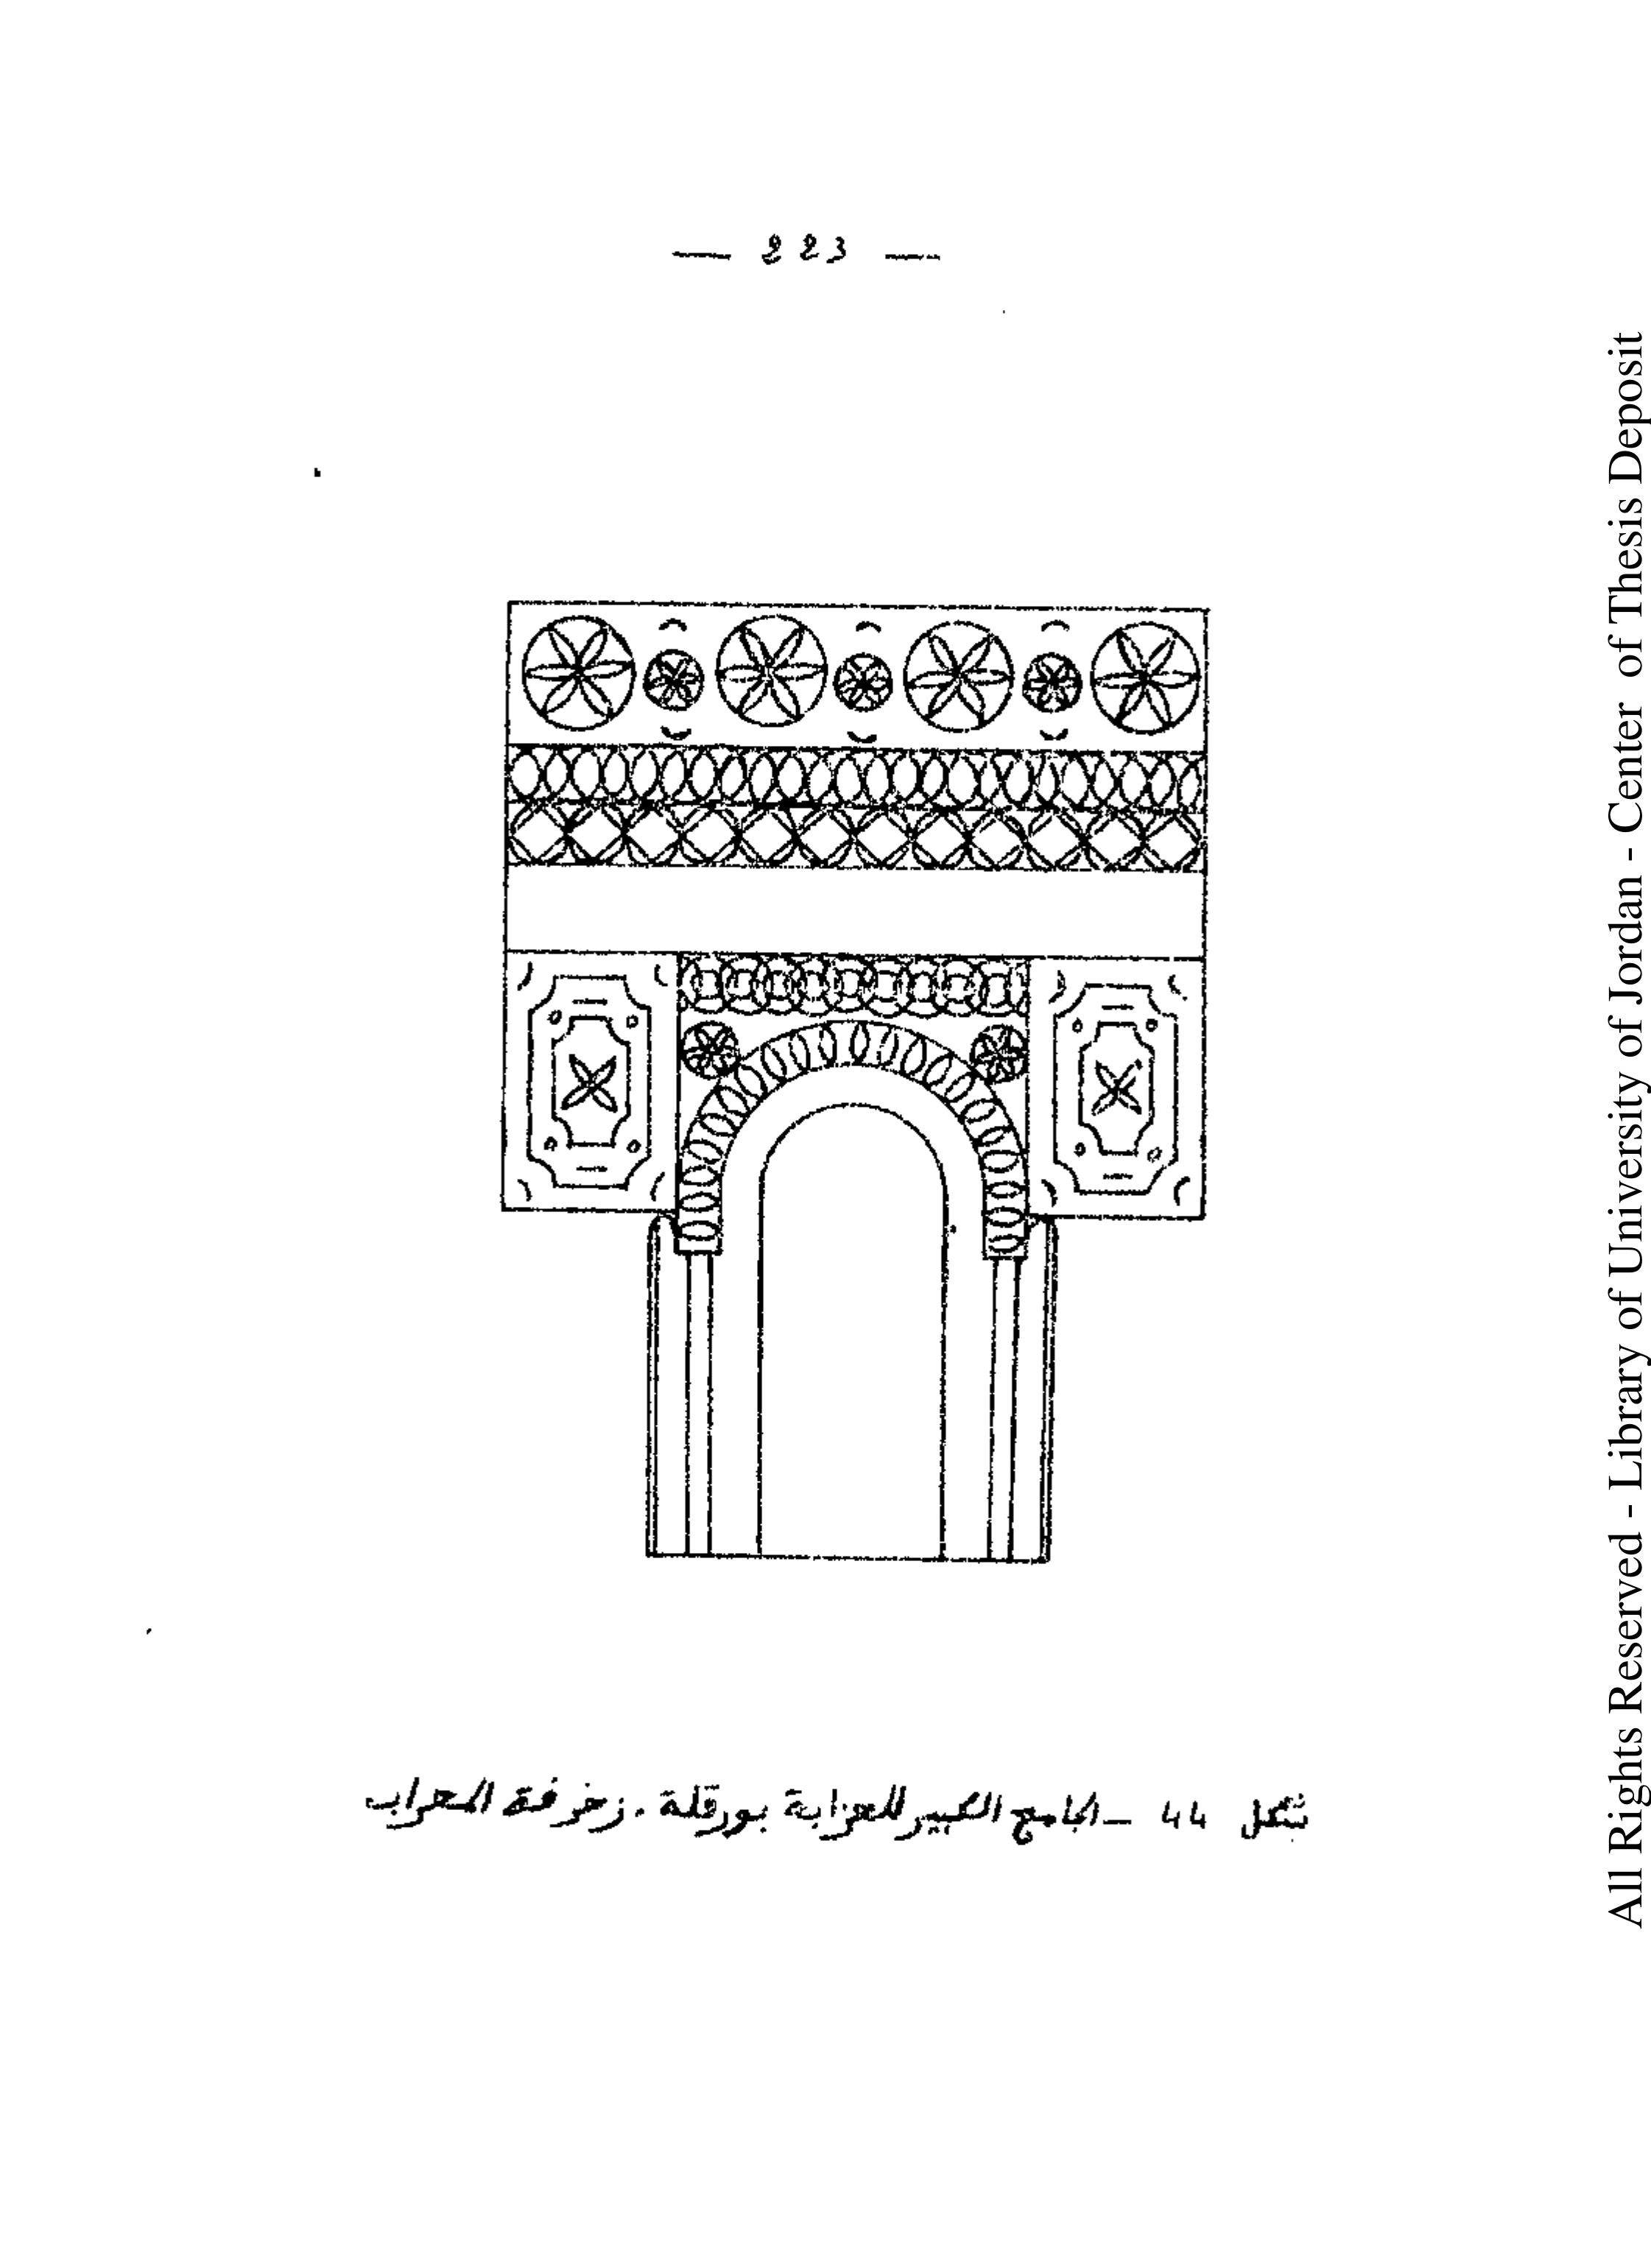 — 223 —
شكل 44 - الجامع الكبير للعزابة بورقلة . زخرفة المحراب
All Rights Reserved - Library of University of Jordan - Center of Thesis Deposit